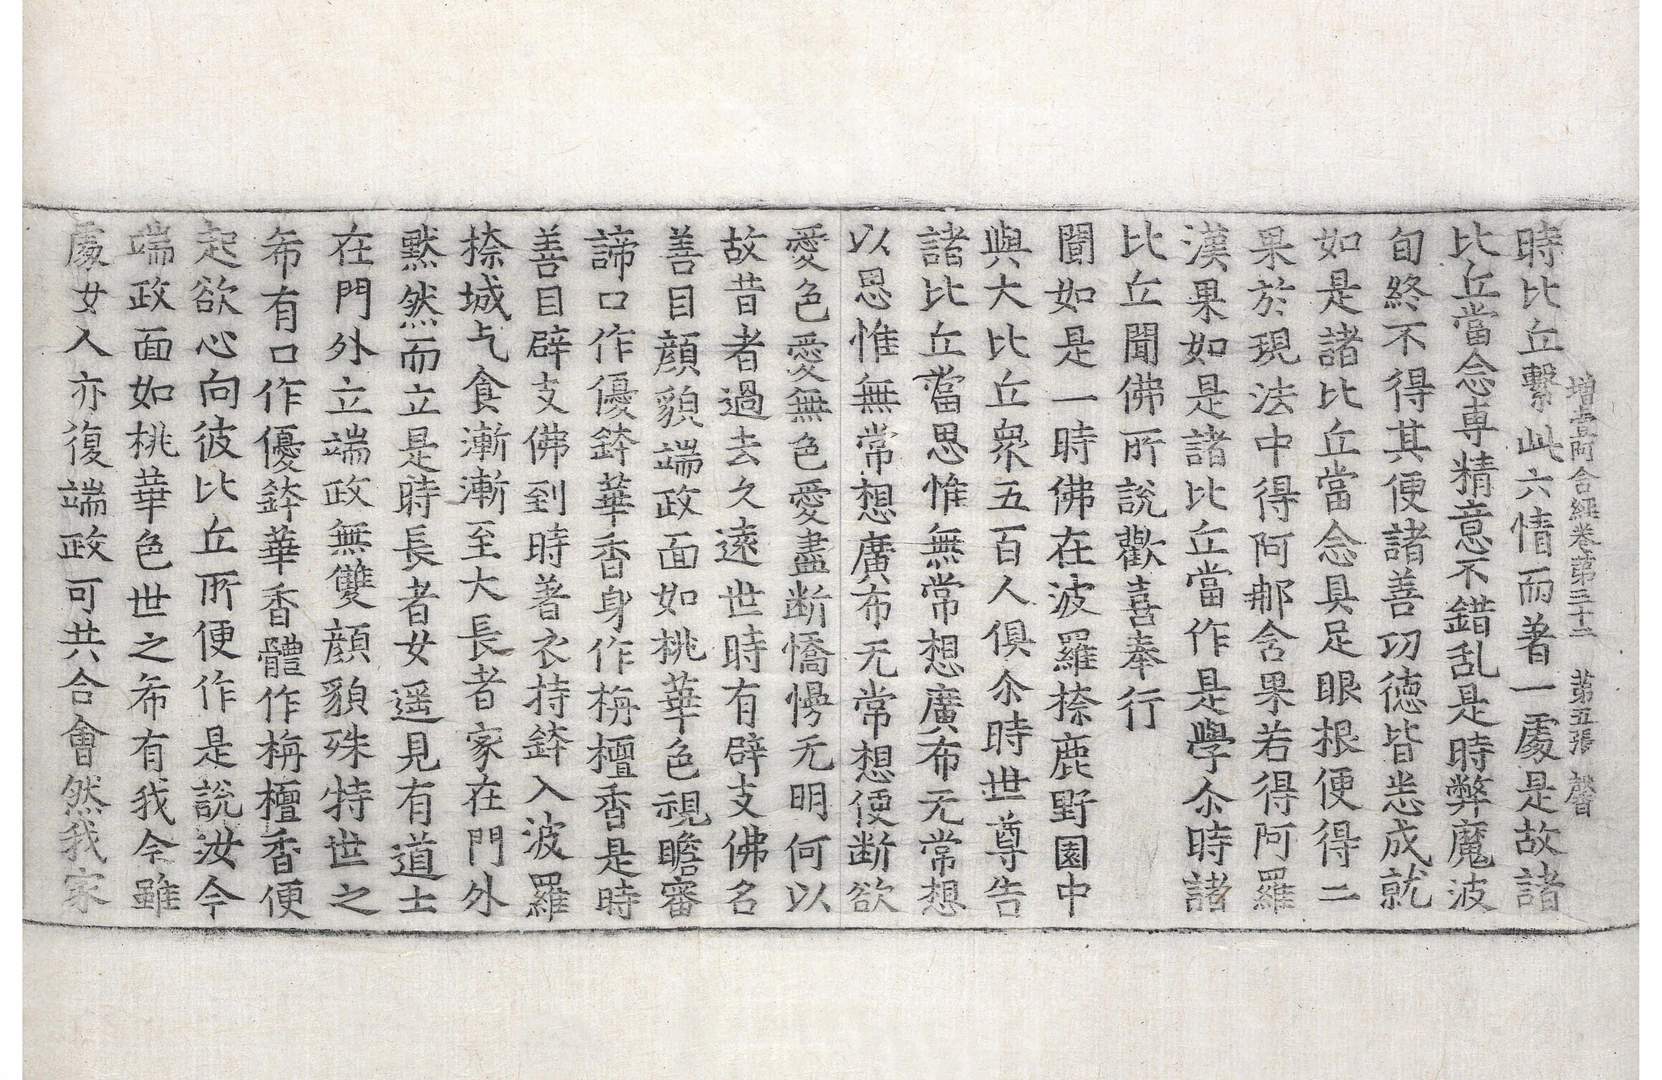 增壹阿含經卷第三十二　第五張　聲
時比丘繫此六情而著一處是故諸
比丘當念專精意不錯乱是時弊魔波
旬終不得其便諸善切德皆悉成就
如是諸比丘當念具足眼根便得二
果於現法中得阿那含果若得阿羅
漢果如是諸比丘當作是學尒時諸
比丘聞佛所說歡喜奉行
聞如是一時佛在波羅㮈鹿野園中
與大比丘衆五百人俱尒時世尊告
諸比丘當思惟無常想廣布无常想
以思惟無常想廣布无常想便断欲
愛色愛無色愛盡断憍慢无明何以
故昔者過去久遠世時有辟支佛名
善目顔貌端政面如桃華色視瞻審
諦口作優鉢華香身作栴檀香是時
善目辟支佛到時著衣持鉢入波羅
㮈城乞食漸漸至大長者家在門外
黙然而立是時長者女遥見有道士
在門外立端政無雙顔貌殊特世之
希有口作優鉢華香體作栴檀香便
起欲心向彼比丘所便作是說汝今
端政面如桃華色世之希有我今雖
處女人亦復端政可共合會然我家